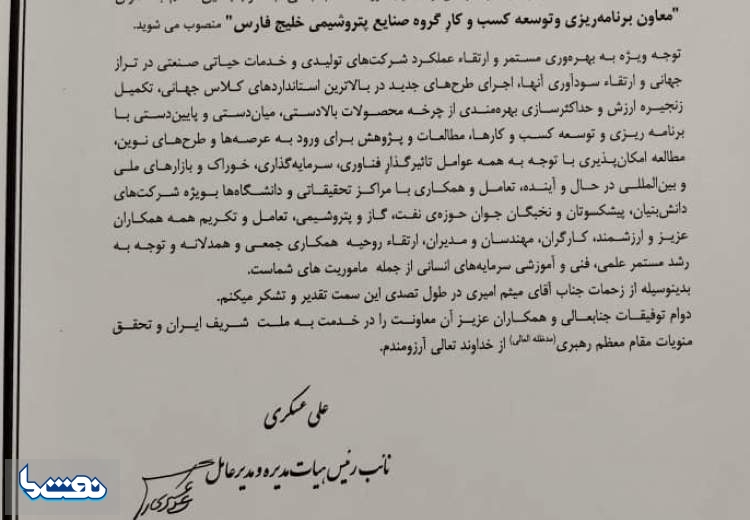 "معاون برنامه‌ریزی و توسعه کسب و کار گروه صنایع پتروشیمی خلیج فارس" منصوب می شوید.
توجه ویژه به بهره‌وری مستمر و ارتقاء عملکرد شرکت‌های تولیدی و خدمات حیاتی صنعتی در تراز
جهانی و ارتقاء سودآوری آنها، اجرای طرح‌های جدید در بالاترین استانداردهای کلاس جهانی، تکمیل
زنجیره ارزش و حداکثرسازی بهره‌مندی از چرخه محصولات بالادستی، میان‌دستی و پایین‌دستی با
برنامه ریزی و توسعه کسب و کارها، مطالعات و پژوهش برای ورود به عرصه‌ها و طرح‌های نوین،
مطالعه امکان‌پذیری با توجه به همه عوامل تاثیرگذار فناوری، سرمایه‌گذاری، خوراک و بازارهای ملی
و بین‌المللی در حال و آینده، تعامل و همکاری با مراکز تحقیقاتی و دانشگاه‌ها بویژه شرکت‌های
دانش‌بنیان، پیشکسوتان و نخبگان جوان حوزه‌ی نفت، گاز و پتروشیمی، تعامل و تکریم همه همکاران
عزیز و ارزشمند، کارگران، مهندسان و مدیران، ارتقاء روحیه همکاری جمعی و همدلانه و توجه به
رشد مستمر علمی، فنی و آموزشی سرمایه‌های انسانی از جمله ماموریت های شماست.
بدینوسیله از زحمات جناب آقای میثم امیری در طول تصدی این سمت تقدیر و تشکر میکنم.
دوام توفیقات جنابعالی و همکاران عزیز آن معاونت را در خدمت به ملت شریف ایران و تحقق
منویات مقام معظم رهبری(مدظله العالی) از خداوند تعالی آرزومندم.
علی عسکری
نائب رئیس هیات مدیره و مدیرعامل
نفت ما